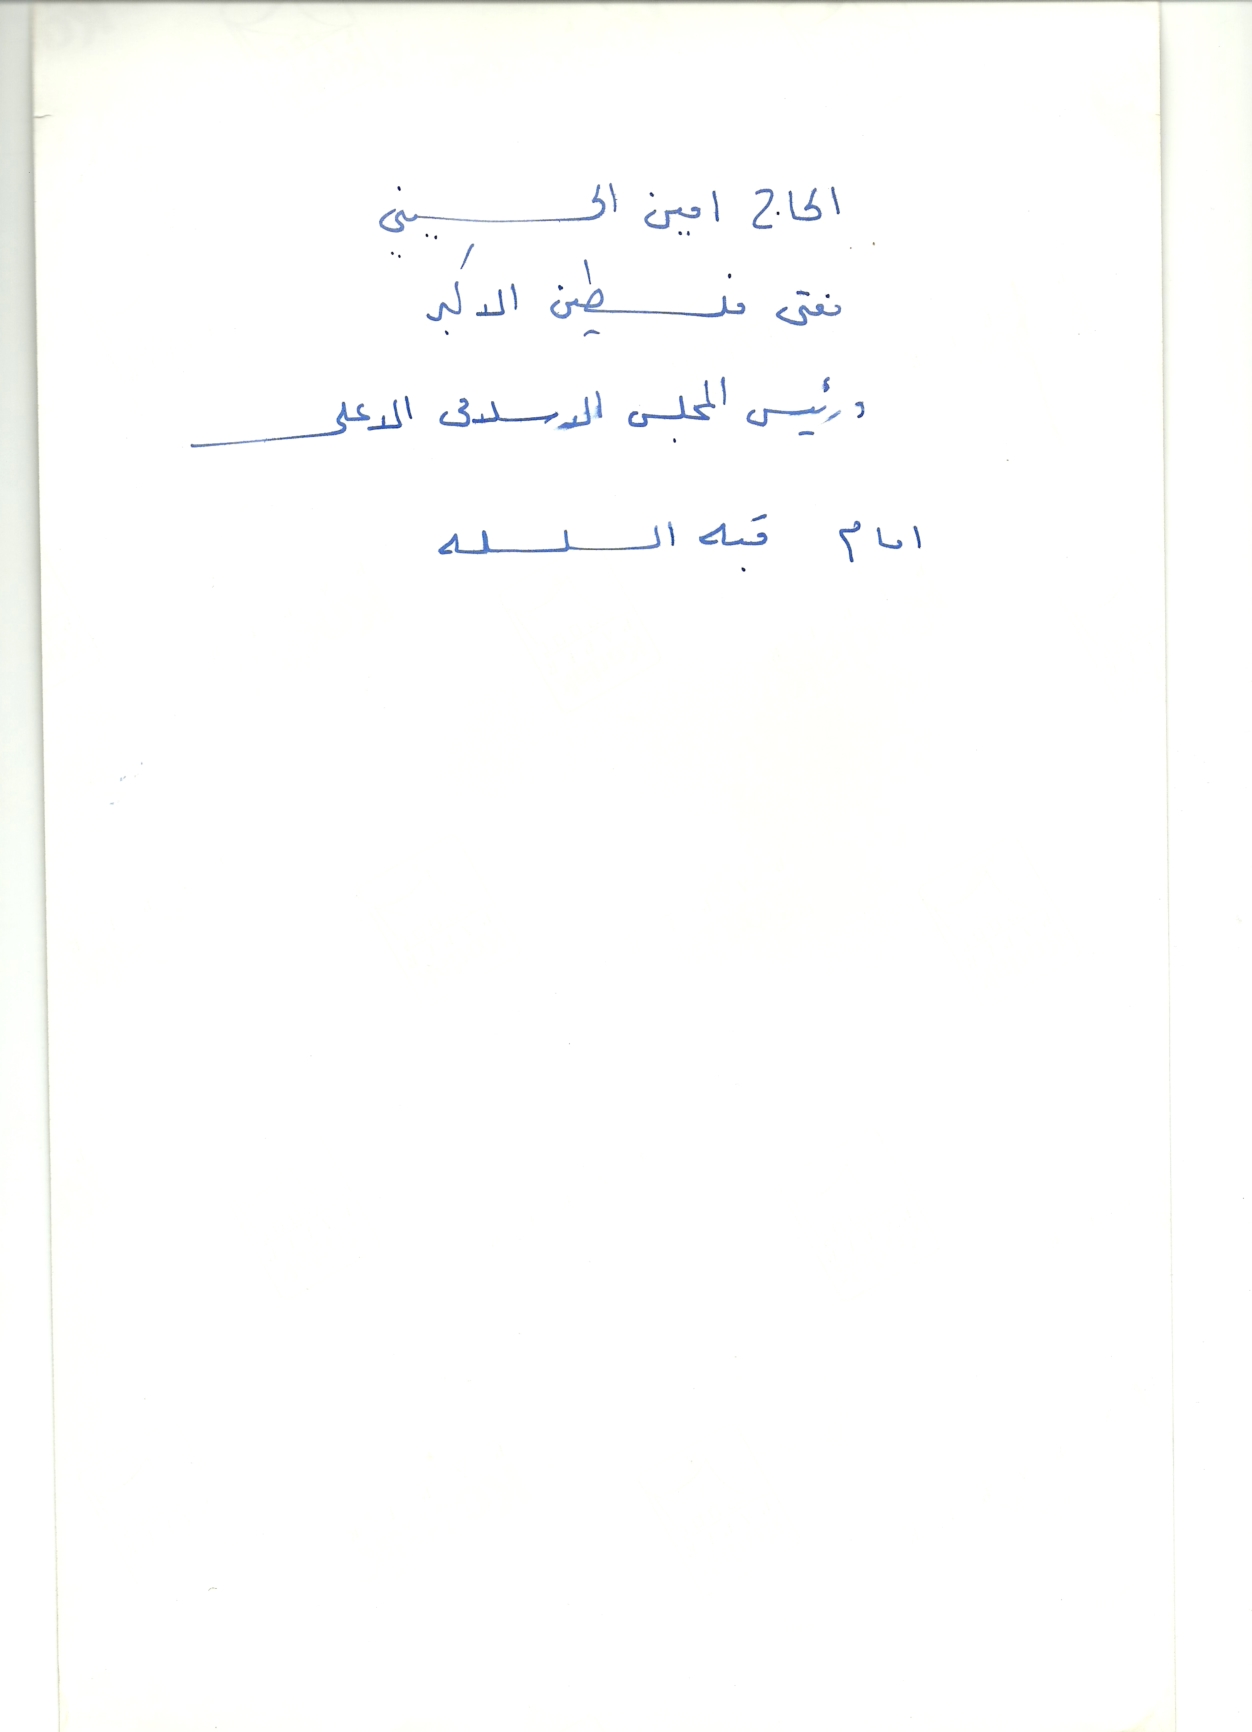 الحاج امين الحسيني
مفتى فلسطين الاكبر
ورئيس المجلس الاسلامى الاعلى
امام قبه السلسله